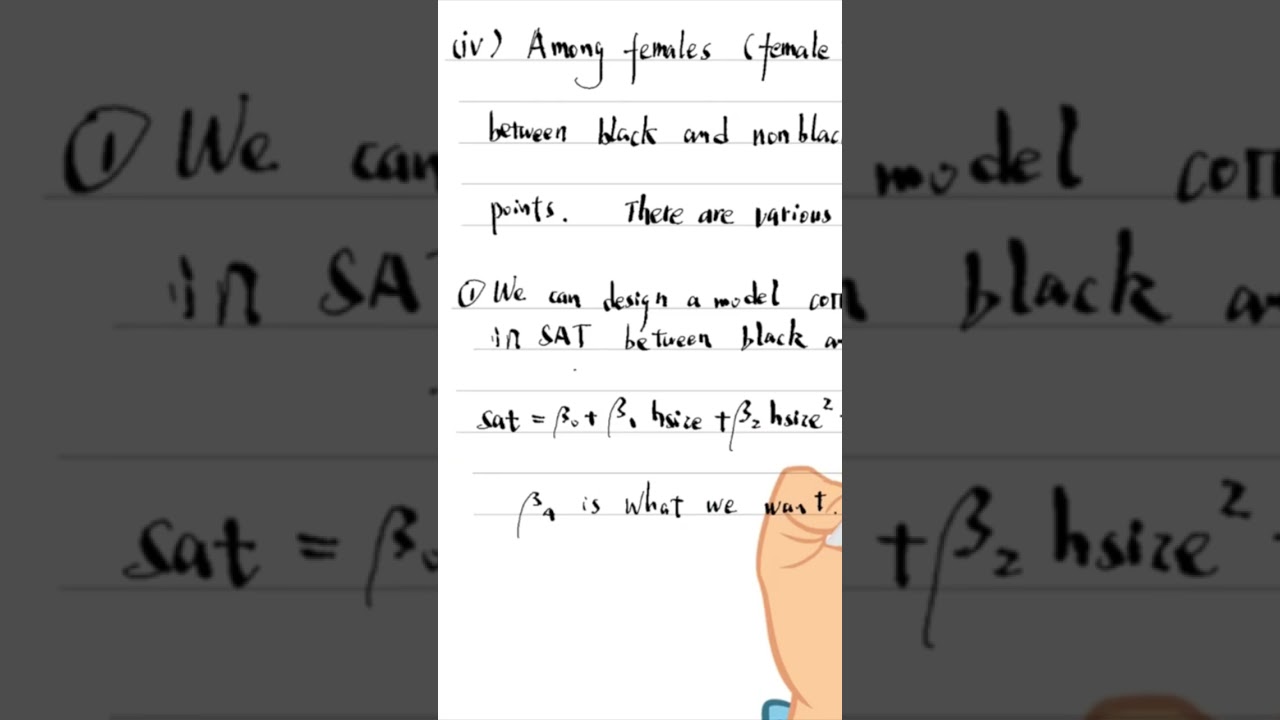 (iv) Among females (female
between black and nonblac
points. There are various
① We can design a model con
in SAT between black an
sat = β₀ + β₁ hsize + β₂ hsize²
β₄ is what we want.